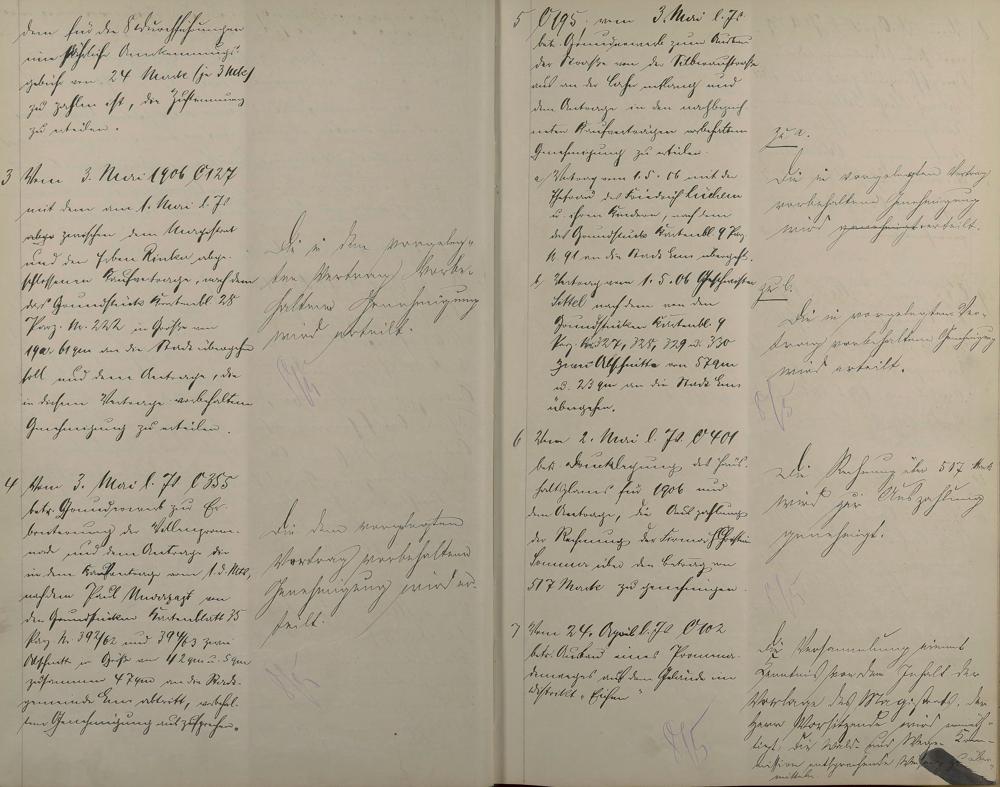 dem für die Rohrdurchführungen
eine jährliche Anerkennungs-
gebühr von 24 Mark (je 3 Mk)
zu zahlen ist, die Zustimmung
zu erteilen.
3 Vom 3. Mai 1906 C 127
mit dem am 1. Mai l. Js
zwischen dem Magistrat
und den Erben Rinka abge-
schlossenen Kaufvertrage, nach dem
das Grundstück Kartenbl. 28
Parz. Nr. 222 in Größe von
19 ar 61 qm an die Stadt übergehen
soll und dem Antrage, die
in diesem Vertrage vorbehaltene
Genehmigung zu erteilen.
Die in dem vorgeleg-
ten Vertrag vorbe-
haltene Genehmigung
wird erteilt.
4 Vom 3. Mai l. Js C 355
betr. Grunderwerb zur Ver-
breiterung der
und dem Antrage die
in dem vom 1. d. Mts,
nach dem Paul von
den Grundstücken Kartenblatt 35
Parz. Nr. 392/62 und 394/63 zwei
Abschnitte in Größe von 42 qm u. 5 qm
zusammen 47 qm an die Stadt-
gemeinde Ems abtritt, vorbehal-
tene Genehmigung auszusprechen.
Die dem vorgelegten
Vertrag vorbehaltene
Genehmigung wird er-
teilt.
5 C 195 vom 3. Mai l. Js.
betr. Grunderwerb zum Ausbau
der Straße von der Silberaustraße
aus an der Lahn entlang und
dem Antrage in den nachbezeich-
neten Kaufverträgen vorbehaltene
Genehmigung zu erteilen.
a) Vertrag vom 1. 5. 06 mit der
Ehefrau des Friedrich
u. ihren Kindern, nach dem
das Grundstück Kartenbl. 9 Parz.
N 91 an die Stadt Ems übergeht.
b. Vertrag vom 1. 5. 06 Geschwister
Sittel nach dem von den
Grundstücken Kartenbl. 9
Parz. Nr. 327, 328, 329 u. 330
zwei Abschnitte von 57 qm
u. 23 qm an die Stadt Ems
übergehen.
zu a.
Die in vorgelegtem Vertrag
vorbehaltene Genehmigung
wird genehmigt erteilt.
zu b.
Die in vorgelegtem Ver-
trag vorbehaltene Genehmigung
wird erteilt.
6 Vom 2. Mai l. Js. C 401
betr. Drucklegung des Haus-
haltsplans für 1906 und
dem Antrage, die Auszahlung
der Rechnung der Firma Christian
Sommer über den Betrag von
517 Mark zu genehmigen.
Die Rechnung über 517 Mark
wird zur Auszahlung
genehmigt.
7 Vom 24. April l. Js C 102
betr. Ausbau eines Promena-
denweges auf dem Gelände im
Distrikt "Eichen"
Die Versammlung nimmt
Kenntnis von dem Inhalt der
Vorlage des Magistrats. Der
Herr Vorsitzende wird ermäch-
tigt, die Wald- und Wege-Kom-
mission entsprechende zu über-
mitteln.